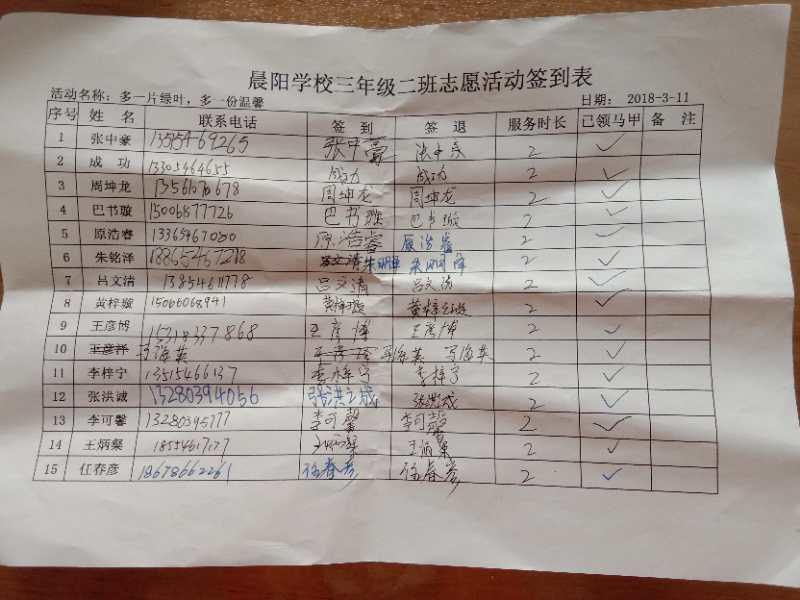 晨阳学校三年级二班志愿活动签到表
活动名称：多一片绿叶，多一份温馨 日期： 2018-3-11
序号 姓 名 联系电话 签 到 签 退 服务时长 已领马甲 备 注
1 张中豪 张中豪 张中豪 2 ✓
2 成 功 13305464655 成功 成功 2 ✓
3 周坤龙 周坤龙 周坤龙 2 ✓
4 巴书璇 15006877726 巴书璇 巴书璇 2 ✓
5 原浩睿 原浩睿 原浩睿 2 ✓
6 朱铭泽 18865467218 吕文清 2 ✓
7 吕文清 13854611778 吕文清 吕文清 2 ✓
8 黄梓璇 15066068941 黄梓璇 黄梓璇 2 ✓
9 王彦博 王彦博 王彦博 2 ✓
10 王彦祥 马海英 马海英 马海英 2 ✓
11 李梓宁 13515466137 李梓宁 李梓宁 2 ✓
12 张洪诚 13280394056 张洪诚 张洪诚 2 ✓
13 李可馨 13280395777 李可馨 李可馨 2 ✓
14 王炳粲 王炳粲 王炳粲 2 ✓
15 任春彦 18678662261 任春彦 任春彦 2 ✓